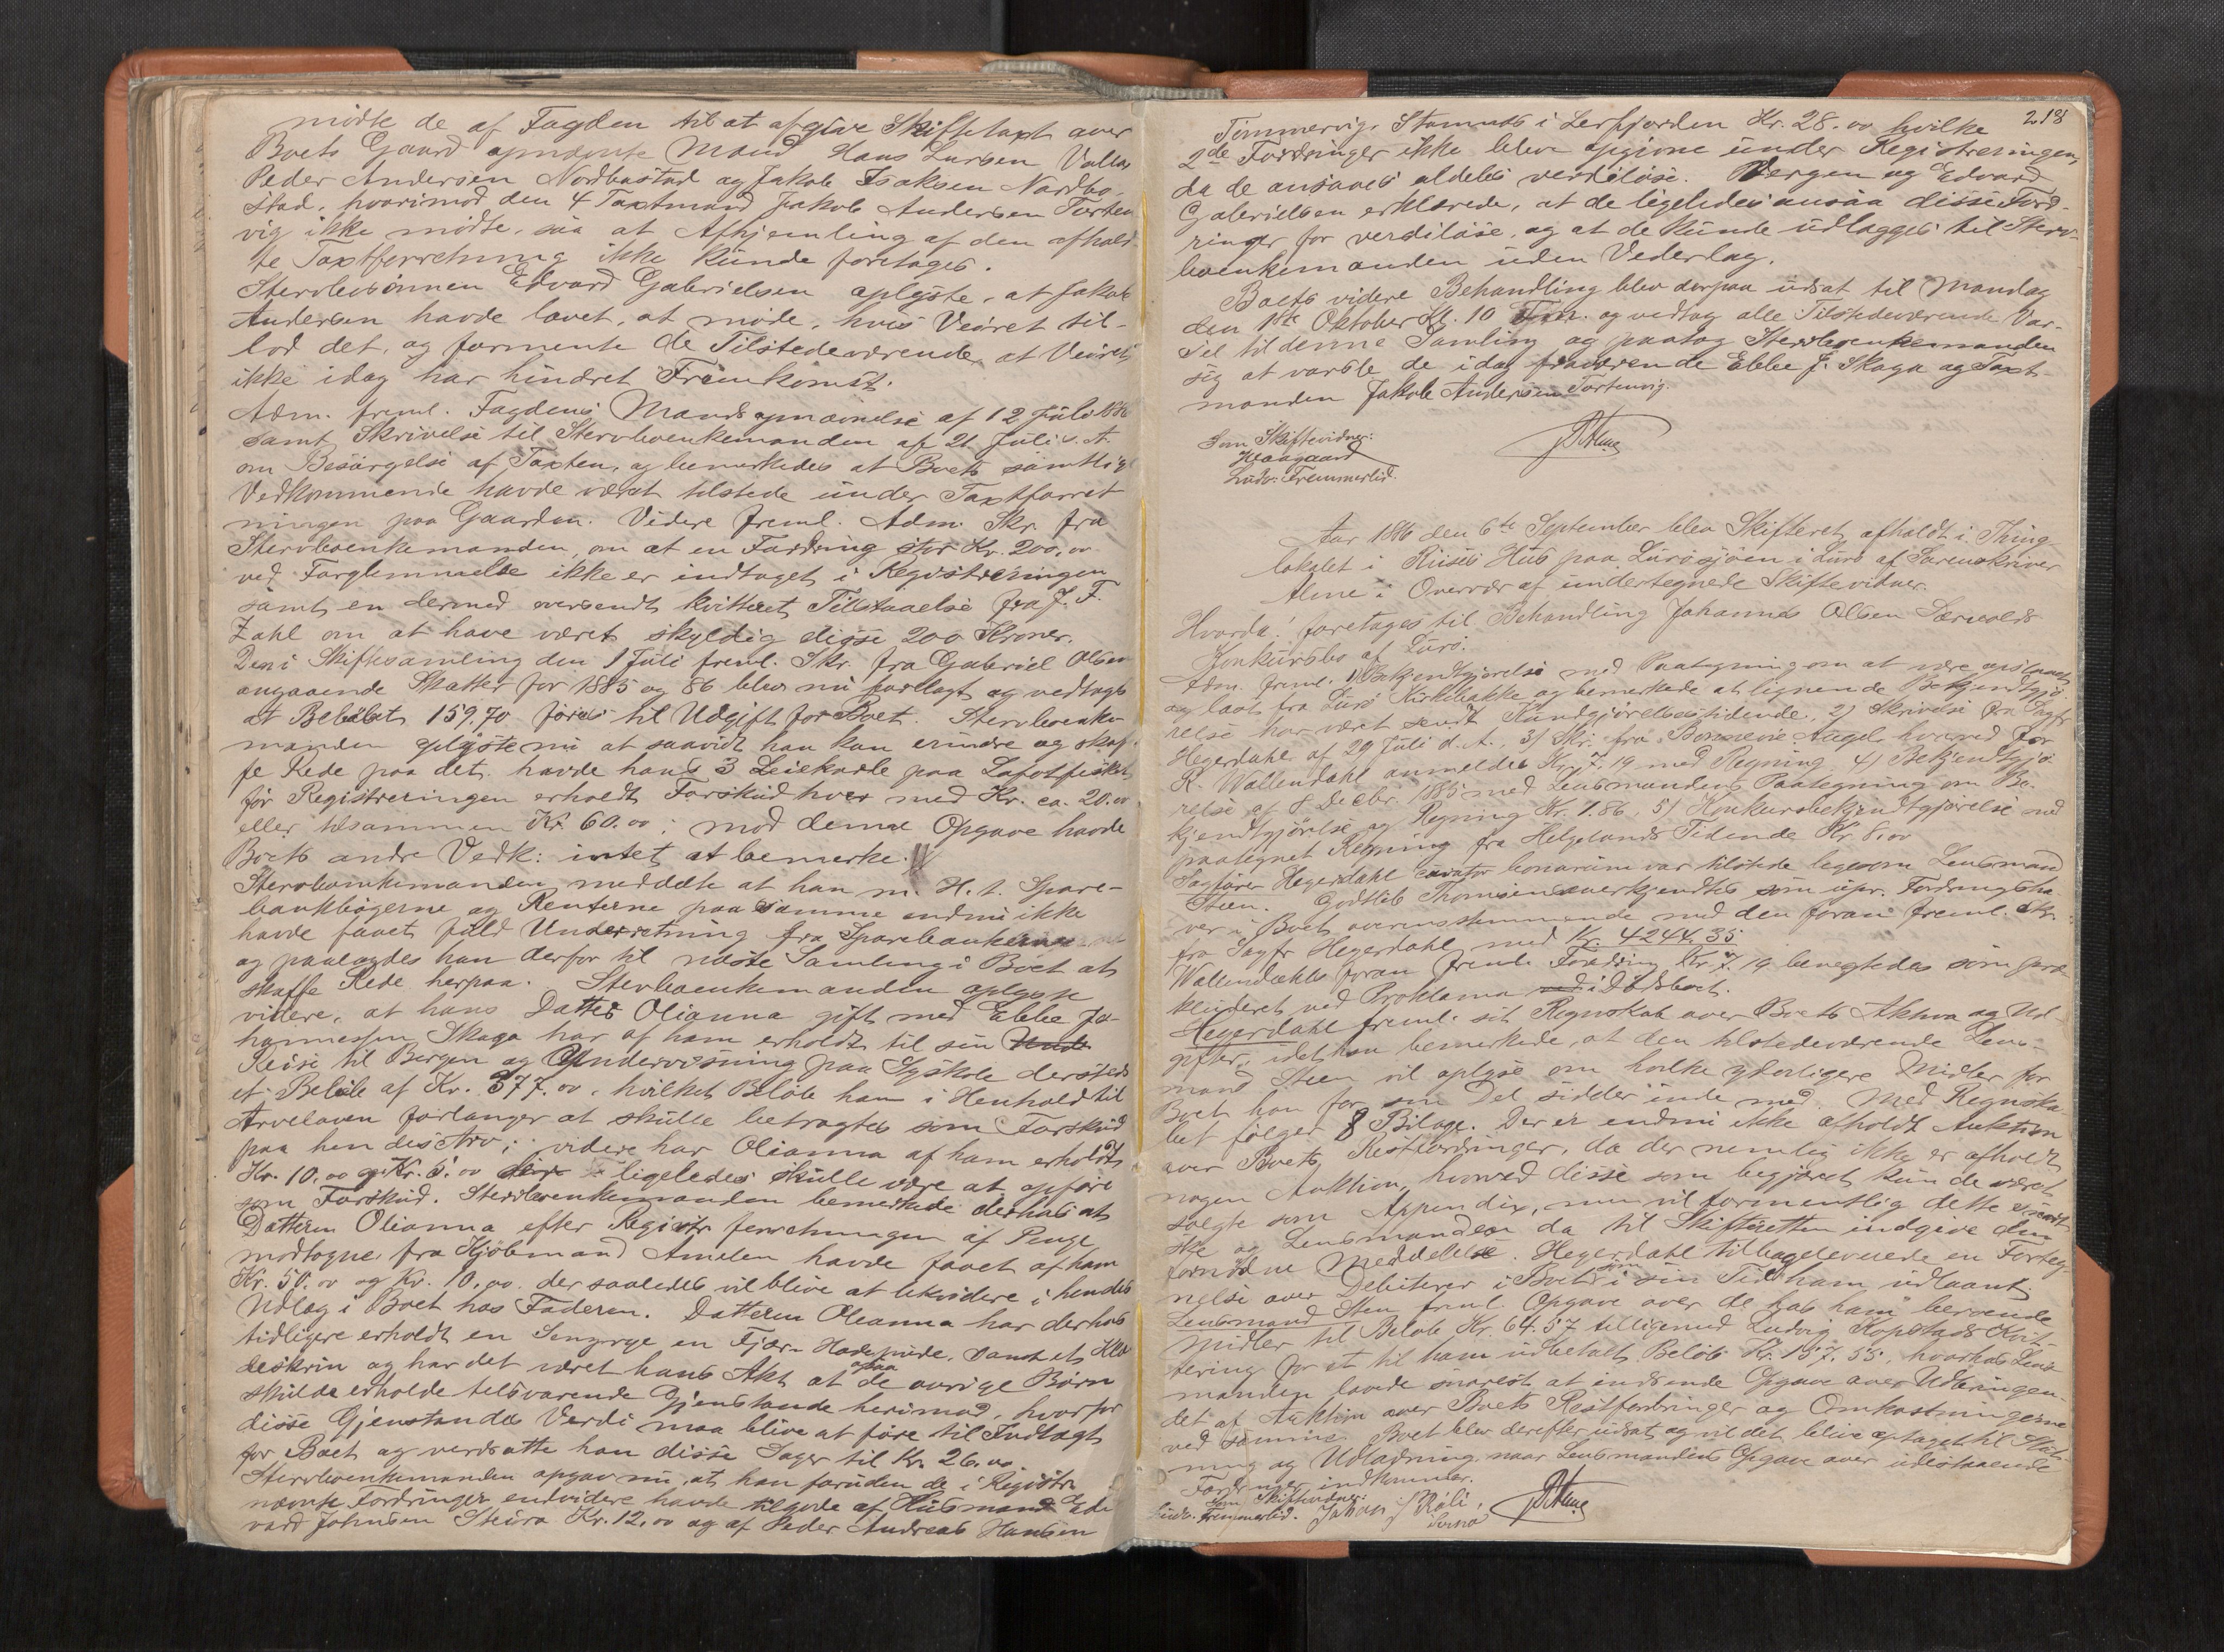 mödte de af Fogden til at afgive Skiftetaxt over
Boets Gaard opnævnte Mænd Hans Larsen Valla,
Peder Andersen Nordbostad og Jakob Isaksen Nordbo-
stad, hvorimod den 4 Taxtmand Jakob Andersen Torten
vig ikke mödte, saa at Afhjemling af den afhold-
te Taxtforretning ikke kunde foretages.
Stervbosönnen Edvard Gabrielsen oplyste, at Jakob
Andersen havde lovet, at møde, hvis Veiret til-
lod det, og formente de Tilstedeværende at Veiret
ikke idag har hindret Fremkomst.
Adm. freml. Fogdens Mandsopnævnelse af 12 Juli 1886
samt Skrivelse til Stervboenkemanden af 21 Juli s. A.
om Besörgelse af Taxten, og bemerkedes at Boets samtlige
Vedkommende havde været tilstede under Taxtforret
ningen paa Gaarden. Videre freml. Adm. Skr. fra
Stervboenkemanden, om at en Fordring stor Kr. 200,00
ved Forglemmelse ikke er indtaget i Registreringen
samt en dermed oversendt kvitteret Tilstaaelse fra J. F.
Zahl om at have været skyldig disse 200 Kroner.
Den i Skiftesamling den 1 Juli freml. Skr. fra Gabriel Olsen
angaaende Skatter for 1885 og 86 blev nu forelagt og vedtoges
at Belöbet 159,70 föres til Udgift for Boet. Stervboenke-
manden oplyste nu at saavidt han kan erindre og skaf-
fe Rede paa det, havde hans 3 Leiekarle paa Lofotfisket
för Registreringen erholdt Forskud hver med Kr. ca. 20.00
eller tilsammen Kr. 60.00; mod denne Opgave havde
Boets andre Vedk: intet at bemerke.
Stervboenkemanden meddelte at han m. H. t. Spare-
bankbögerne og Renterne paa samme endnu ikke
havde faaet fuld Underretning fra Sparebankerne
og paalagdes han derfor til næste Samling i Boet at
skaffe Rede herpaa. Stervboenkemanden oplyste
videre, at hans Datter Olianna gift med Ebbe Jo-
hannessen Skaga har af ham erholdt til sin
Reise til Bergen og Undervisning paa Syskole dersteds
et Belöb af Kr. 377.00, hvilket Belöb han i Henhold til
Arveloven forlanger at skulle betragtes som Forskud
paa hendes Arv; videre har Olianna af ham erholdt
Kr. 10,00 og Kr. 8.00 ligeledes skulle være at opföre
som Forskud. Stervboenkemanden bemerkede derhos at
Datteren Olianna efter Registr. forretningen af Penge
modtogne fra Kjöbmand Amelen havde faaet af ham
Kr. 50.00 og Kr. 10,00. der saaledes vil blive at likvidere i hendes
Udlæg i Boet hos Faderen. Datteren Olianna har derhos
tidligere erholdt en Seng, en Fjær-Hodepude, samt et Klæ
deskrin og har det været hans Akt at ogsaa de övrige Börn
skulde erholde tilsvarende Gjenstande herimod, hvorfor
disse Gjenstandes Verdi maa blive at före til Indtægt
for Boet og verdsatte han disse Sager til Kr. 26.00
Stervboenkemanden opgav nu, at han foruden de i Registr.
nævnte Fordringer endvidere havde tilgode af Husmand Ed
vard Johnsen Steira Kr. 12,00 og af Peder Andreas Hansen
218
Tömmervig, Stamnes i Lerfjorden Kr. 28.00 hvilke
2de Fordringer ikke blev opgivne under Registreringen,
da de ansaaes aldeles verdilöse. Vergen og Edvard
Gabrielsen erklærede, at de ligeledes ansaa disse Ford-
ringer for verdilöse, og at de kunde udlægges til Sterv-
boenkemanden uden Vederlag.
Boets videre Behandling blev derpaa udsat til Mandag
den 1ste Oktober Kl. 10 Fm. og vedtog alle Tilstedeværende Var-
sel til denne Samling og paatog Stervboenkemanden
sig at varsle de idag fraværende Ebbe J. Skaga og Taxt-
manden Jakob Andersen Tortenvig.
Som Skiftevidner:
Haagaard
Ludv: Fremmerlid.
Alme
Aar 1886 den 6te September blev Skifteret afholdt i Thing
lokalet i Riises Hus paa Lurösjöen i Lurö af Sorenskriver
Alme i Overvær af undertegnede Skiftevidner.
Hvorda! foretages til Behandling Johannes Olsen Særvolds
Konkursbo af Lurö.
Adm. freml. 1) Bekjendtgjörelse med Paategning om at være opslaaet
og læst fra Lurö Kirkebakke og bemerkede at lignende Bekjendtgjö-
relse har været sendt Kundgjörelsestidende, 2) Skrivelse fra Sagf.
Hegerdahl af 29 Juli d. A., 3) Skr. fra Bonnevie Angel hvorved for
R. Wallendahl anmeldes Kr. 7.19 med Regning 4) Bekjendtgjö
relse af 8 Decbr. 1885 med Lensmandens Paategning om Be-
kjendtgjörelse og Regning Kr. 1.86, 5) Konkursbekjendtgjörelse med
paategnet Regning fra Helgelands Tidende Kr. 8.00
Sagförer Hegerdahl curator bonorum var tilstede ligesom Lensmand
Steen. Godtlieb Thomsen anerkjendtes som upr. Fordringsha-
ver i Boet overensstemmende med den foran freml. Skr.
fra Sagf. Hegerdahl med Kr. 4244,35
Wallendahls foran freml. Fordring Kr. 7.19 benegtedes som præ-
kluderet ved Proklama i Dödsboet.
Hegerdahl freml. sit Regnskab over Boets Aktiva og Ud-
gifter, idet han bemerkede, at den tilstedeværende Lens-
mand Steen vil oplyse om hvilke yderligere Midler for
Boet han for sin Del sidder inde med. Med Regnska-
bet fölger 8 Bilage. Der er endnu ikke afholdt Auktion
over Boets Restfordringer, da der nemlig ikke er afholdt
nogen Auktion, hvorved disse som begjæret kunde været
solgte som Appendix, men vil formentlig dette snart
ske og Lensmanden da til Skifteretten indgive den
fornödne Meddelelse. Hegerdahl tilbageleverede en Forteg-
nelse over Debitorer i Boet som i sin Tid ham udlaant.
Lensmand Steen freml. Opgave over de hos ham beroende
Midler til Beløb Kr. 64.57 tilligemed Ludvig Kopstads Kvit-
tering for et til ham udbetalt Belöb Kr. 157.55, hvorhos Lens-
manden lovede snarest at indsende Opgave over Udbringen-
det af Auktion over Boets Restfordringer og Omkostningerne
ved samme. Boet blev derefter udsat og vil det blive optaget til Slut-
ning og Udlodning naar Lensmandens Opgave over udestaaende
Fordringer indkommer.
Som Skiftevidner:
Ludv. Fremmerlid. Johan
Alme